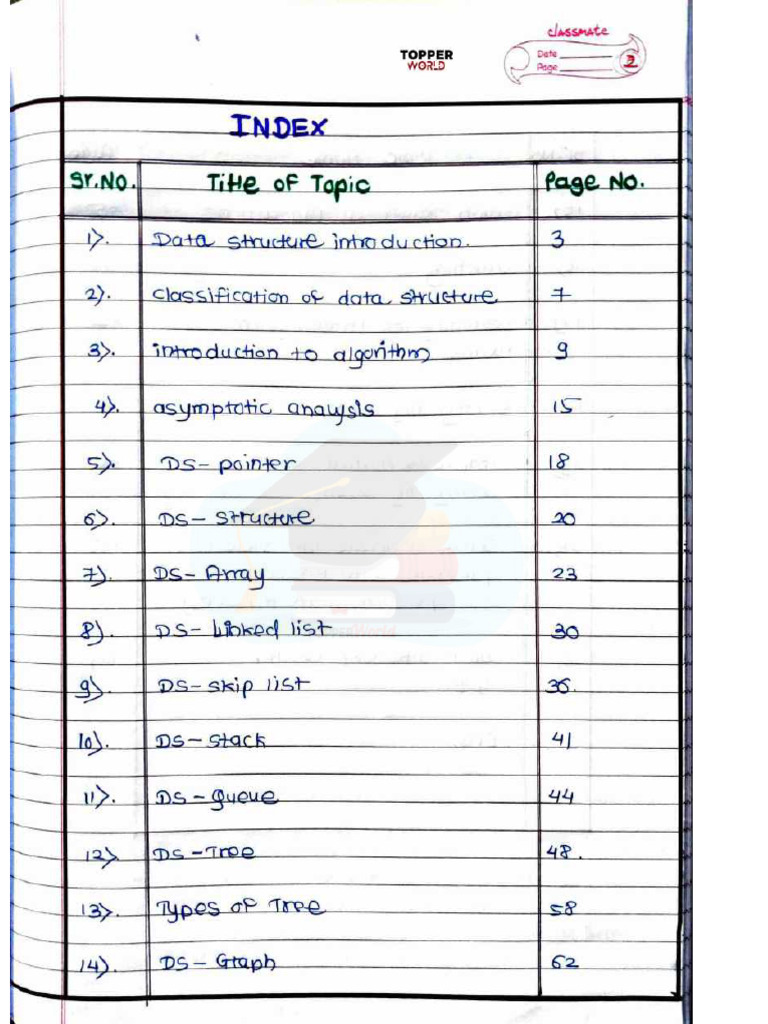 classmate
TOPPER
WORLD
Date
Page 2
INDEX
Sr.No. Title of Topic Page No.
1). Data structure introduction. 3
2). classification of data structure 7
3). introduction to algorithm 9
4). asymptotic analysis 15
5). DS-pointer 18
6). DS-structure 20
7). DS-Array 23
8). DS-Linked list 30
9). DS-skip list 36.
10). DS-stack 41
11). DS-Queue 44
12) DS-Tree 48.
13). Types of Tree 58
14). DS-Graph 62